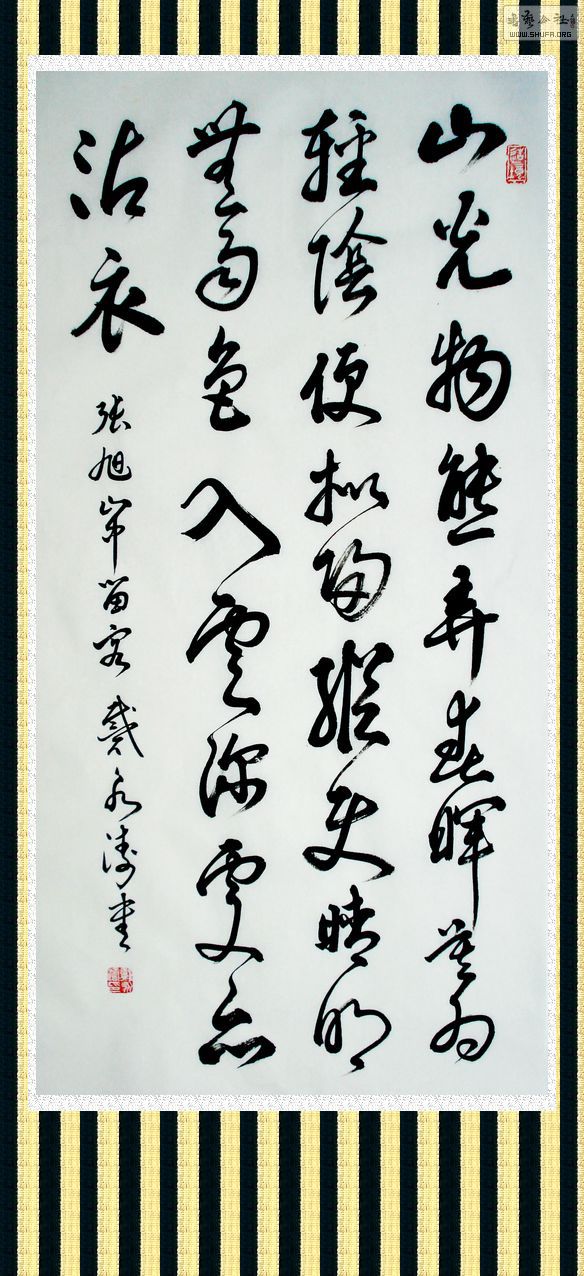 山光物態弄春暉莫為
輕陰便拟歸縱使晴明
無雨色入雲深處亦
沾衣
張旭山中留客 戴永濤書
書藝公社
WWW.SHUFA.ORG